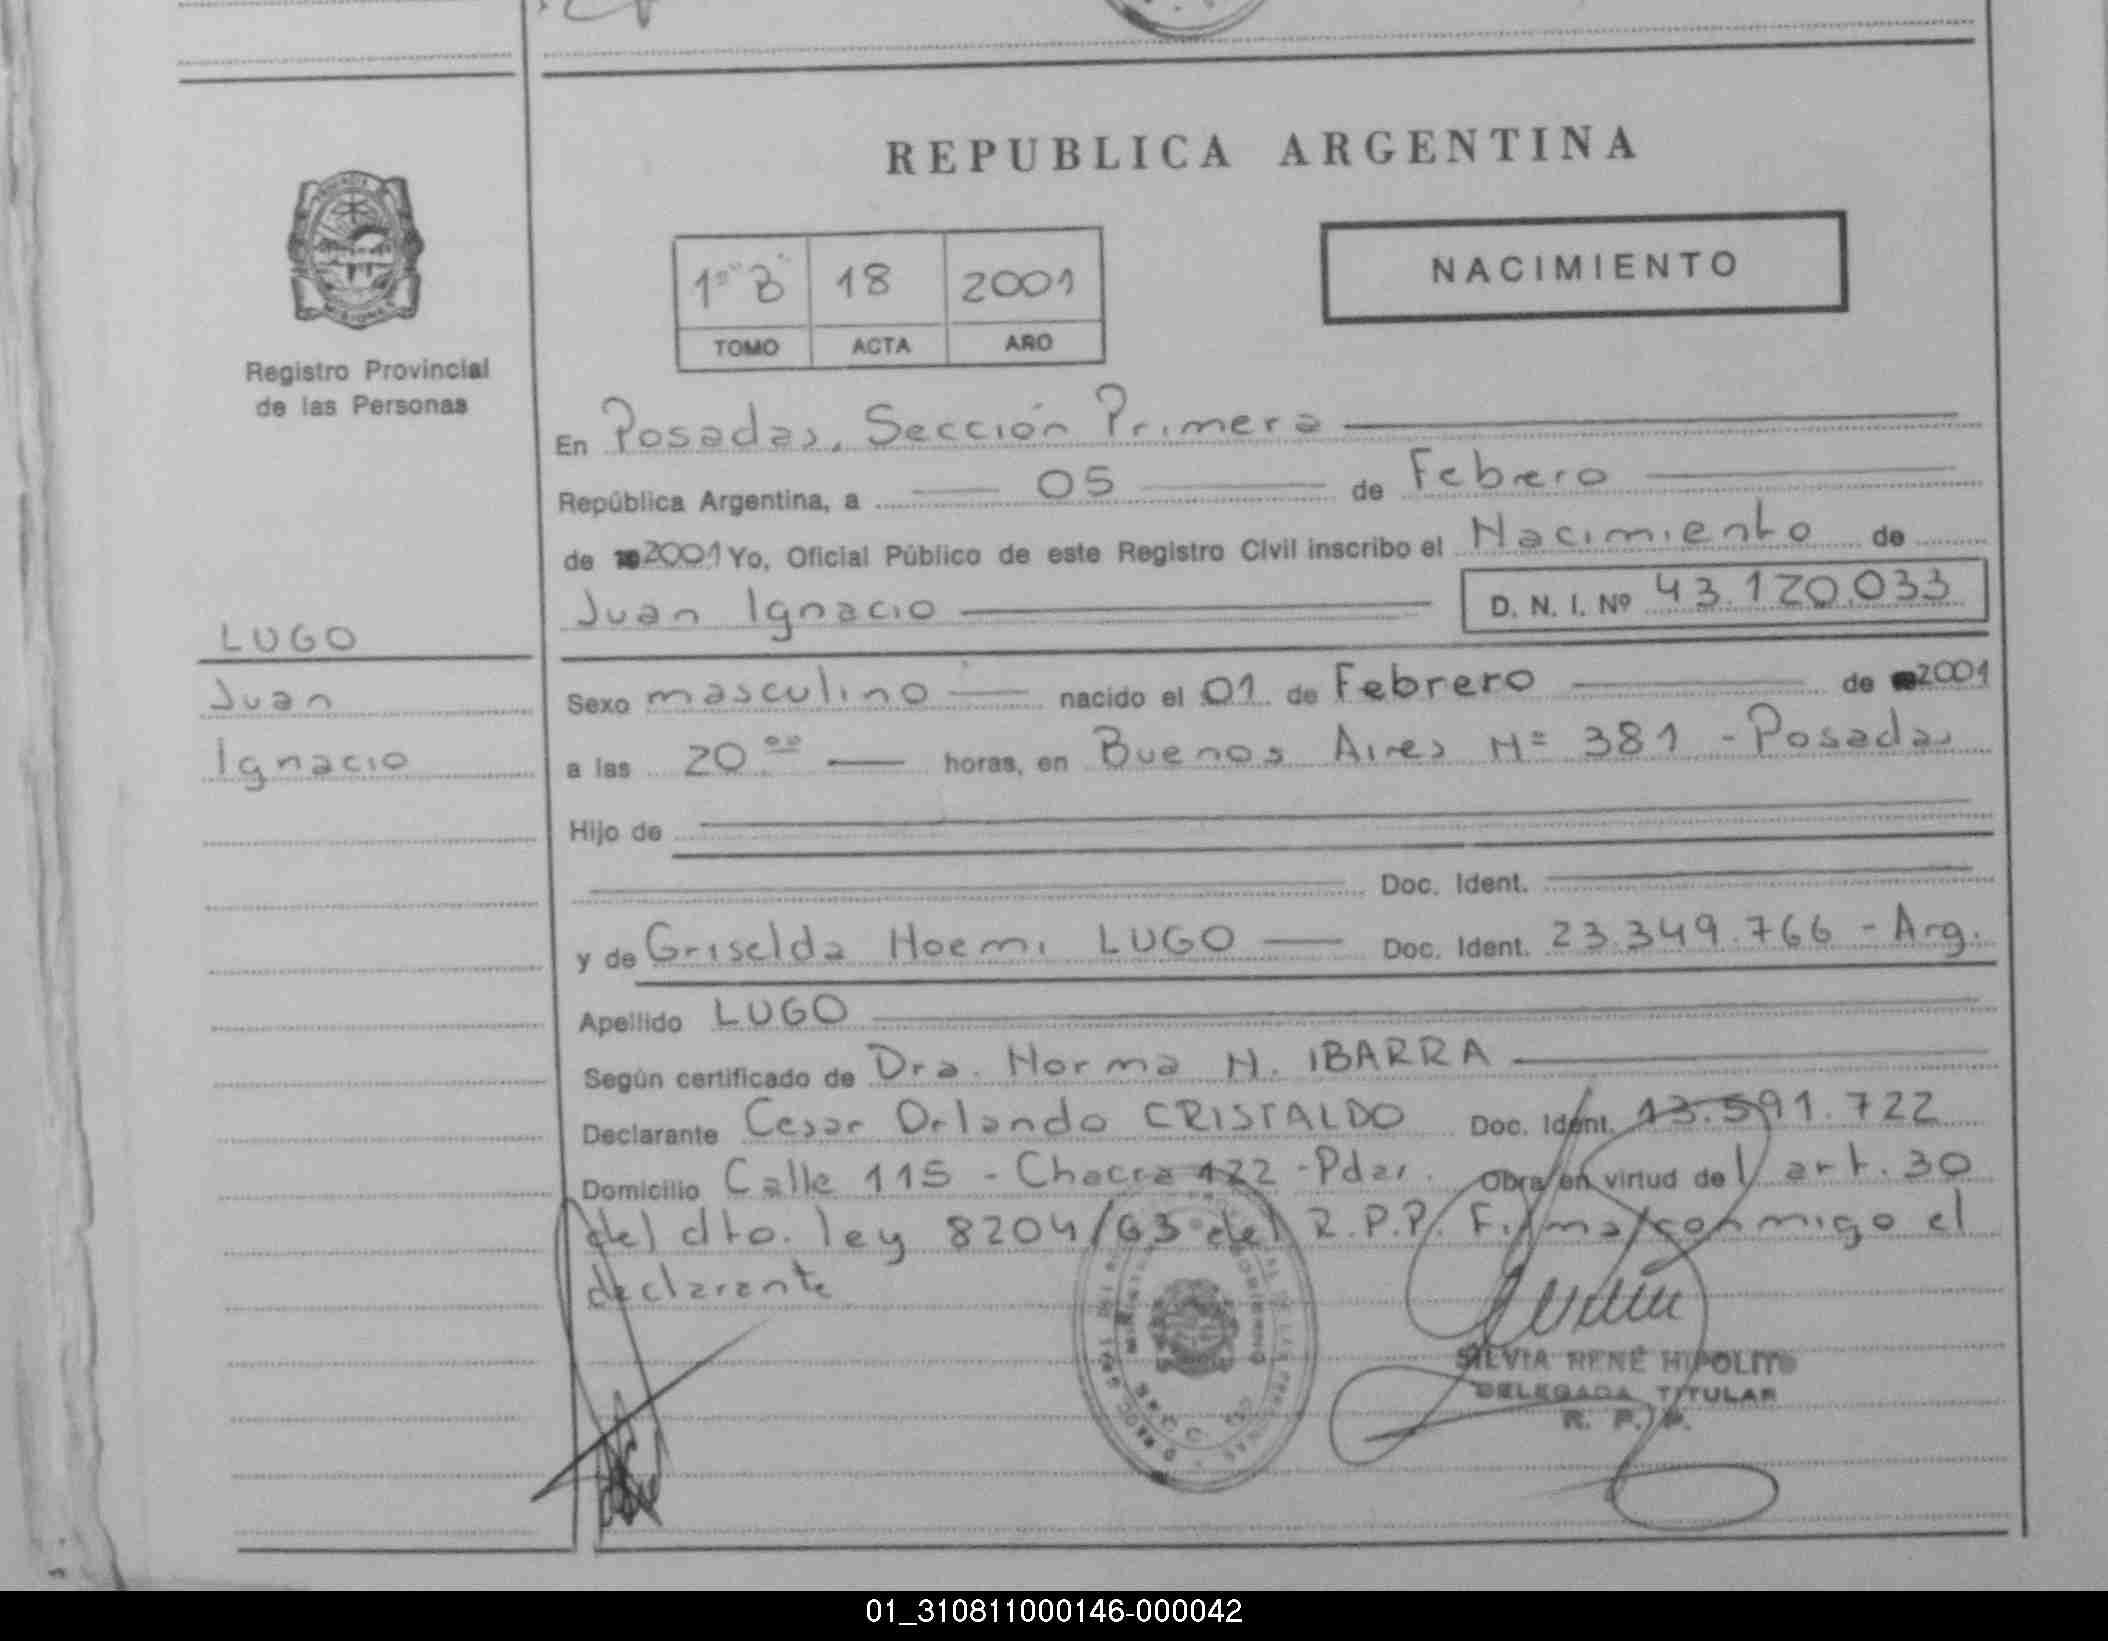 REPUBLICA ARGENTINA
NACIMIENTO
1º "B" 18 2001
TOMO ACTA AÑO
Registro Provincial
de las Personas
En Posadas, Sección Primera
República Argentina, a 05 de Febrero
de 2001 Yo, Oficial Público de este Registro Civil inscribo el Nacimiento de
Juan Ignacio D. N. I. Nº 43.120.033
LUGO
Juan
Ignacio
Sexo masculino nacido el 01 de Febrero de 2001
a las 20 ºº horas, en Buenos Aires Nº 381 - Posadas
Hijo de
Doc. Ident.
y de Griselda Noemi LUGO Doc. Ident. 23.349.766 - Arg.
Apellido LUGO
Según certificado de Dra. Norma N. IBARRA
Declarante Cesar Orlando CRISTALDO Doc. Ident. 13.591.722
Domicilio Calle 115 - Chacra 122 - Pdas. Obra en virtud del art. 30
del dto. ley 8204/63 del R.P.P. Firma conmigo el
declarante
SILVIA RENÉ HIPOLITO
DELEGADA TITULAR
R. P. P.
01_310811000146-000042